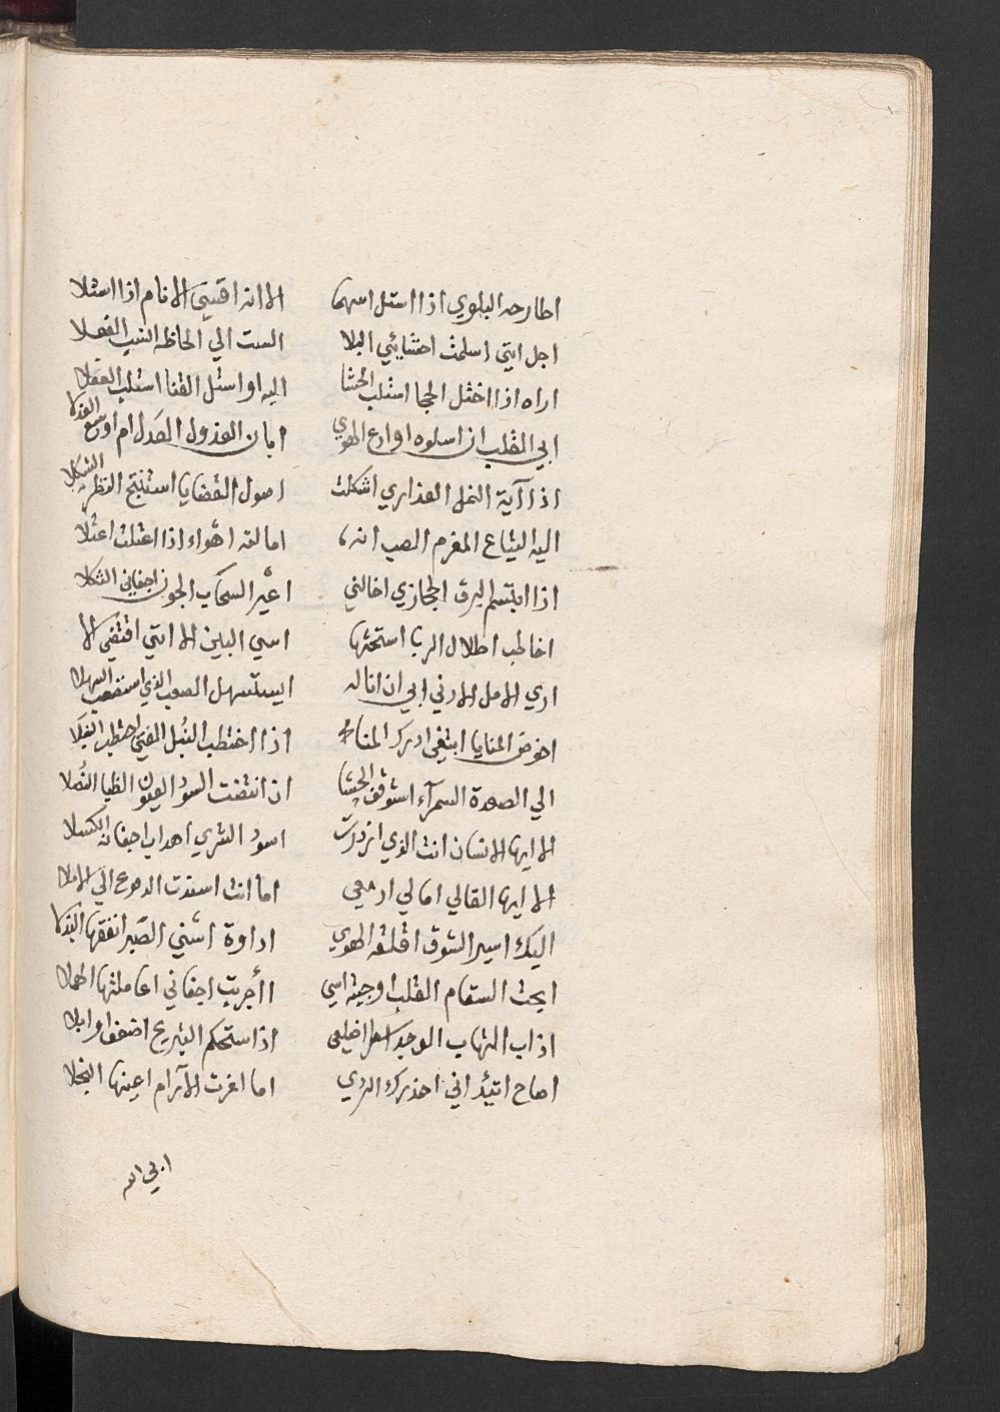 اطارحه البلوي اذا استل اسهما الا انه اقيتي الانام اذا استلا
اجل ايتي اسلمت احشائي البلا الست الي الحاظه انسب الفعلا
اراه اذا اختل الحجا استلب الحشا اليه او استل القنا استلب العقلا
ابي القلب ان اسلوه او ادع الهوي ابان العذول العدل ام اوسع العذلا
اذا آية النمل العذاري اشكلت اصول القضايا استنتج النظر الشكلا
اليه التياع المغرم الصب انه امالته اهواء اذا اعتلت اعتلا
اذا ابتسم البرق الحجازي اخالني اعير السحاب الجون اجفاني الثكلا
اخاطب اطلال الربا استحثها اسي البين الا ايتي اقتفي الا
اري الامل الادني ابي ان اناله ايستسهل الصعب الذي استصعب السهلا
اخوض المنايا ابتغي ادرك المنا اذا اختطب النبل المغيي احتطب النبلا
الي الصعدة السمرآء اشوقت الحشا ان انتضت السود العيون الظبا النصلا
الا ايها الانسان انت الذي ازدرت اسود الشري اهداب اجفانه الكسلا
الا ايها القالي امالي ادمعي اما انت اسندت الدموع الي الاملا
اليك اسير الشوق اقلقه الهوي اداوة اشني الصبر انفقها البذلا
ابحت السقام القلب اوجبته اسي أأجريت اجفاني اعاملتها الهملا
اذاب التهاب الوجد اضلعي اذ استحكم التبريح اضعفوا بلا
اصاح اتيد اني احذرك الردي اما اغرت الآرام اعينها النجلا
ابي الله